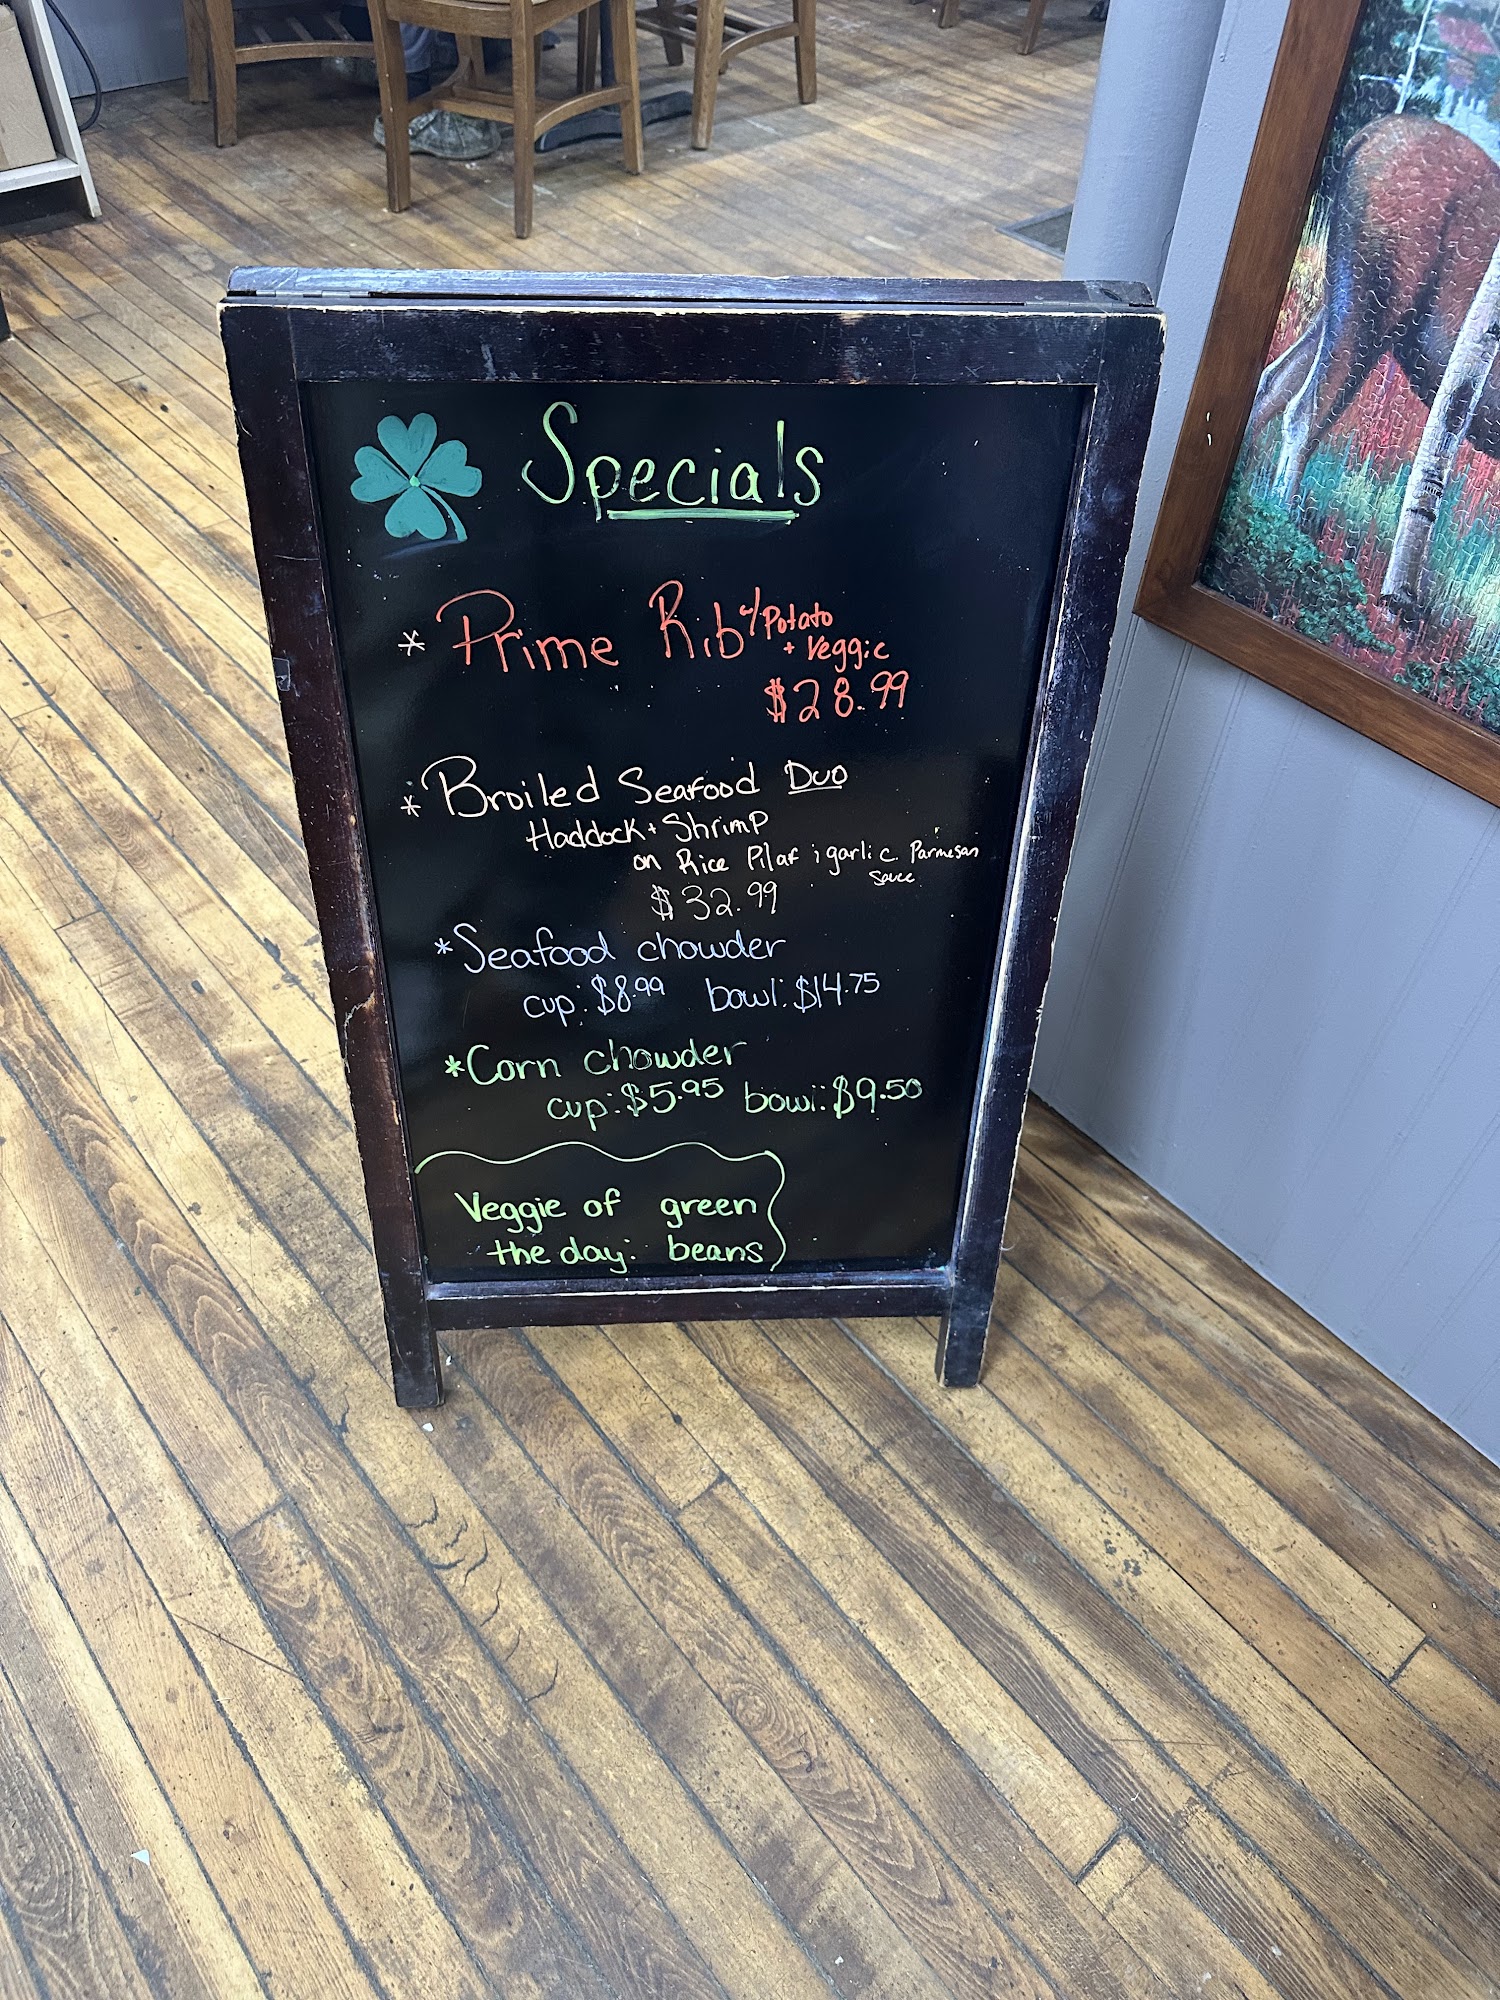 Specials
* Prime Rib w/ Potato
+ Veggie
$28.99
* Broiled Seafood Duo
Haddock + Shrimp
on Rice Pilaf ; garlic Parmesan
sauce
$32.99
*Seafood chowder
cup: $8.99 bowl: $14.75
*Corn chowder
cup: $5.95 bowl: $9.50
Veggie of green
the day: beans